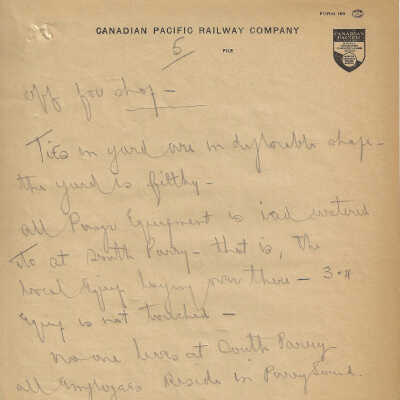 FORM 109
CANADIAN PACIFIC RAILWAY COMPANY
5
FILE
CANADIAN PACIFIC
off for shop -
Ties in yard are in deplorable shape -
the yard is filthy -
all Pasgr Equipment is iced watered
etc at South Parry - that is, The
local Equip laying over there -
Equip is not touched -
no one lives at South Parry
all Employees Reside in Parry Sound.